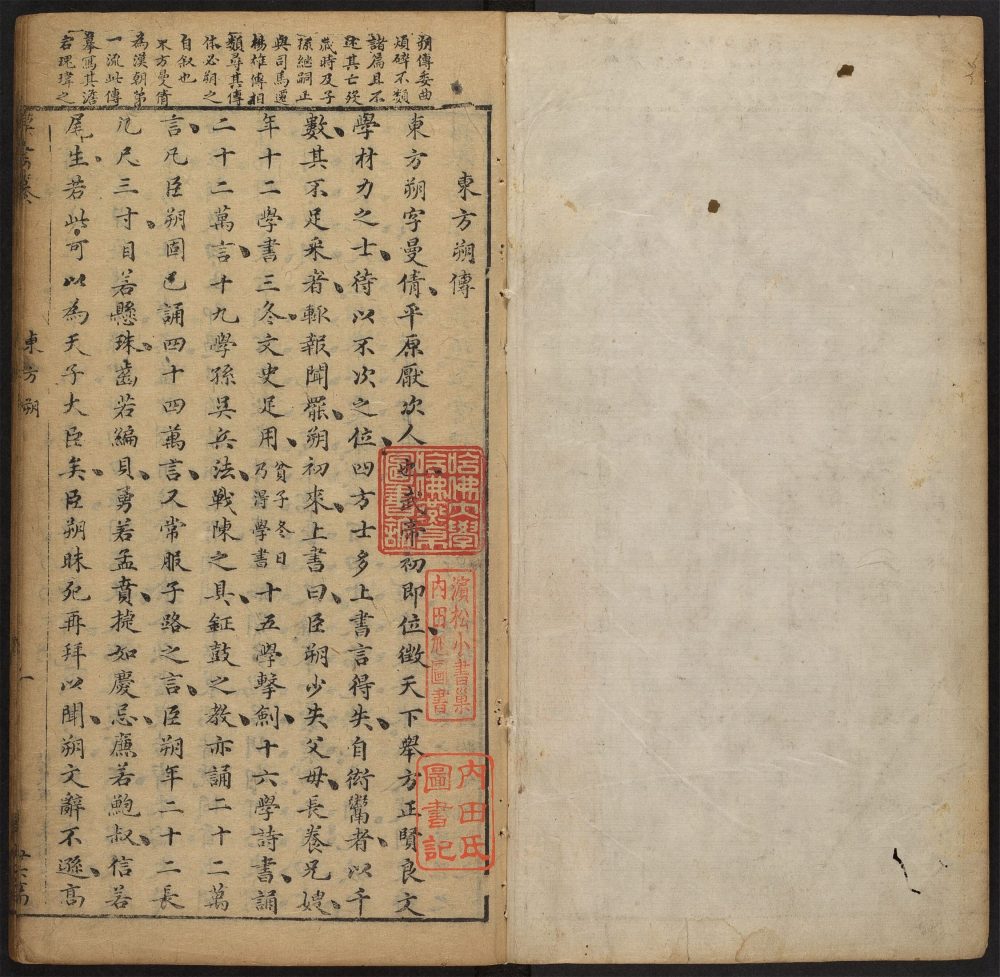 東方朔傳
東方朔字曼倩平原厭次人也武帝初即位徵天下舉方正賢良文
學材力之士待以不次之位四方士多上書言得失自衒鬻者以千
數其不足采者輒報聞罷朔初來上書曰臣朔少失父母長養兄嫂
年十二學書三冬文史足用貧子冬日乃得學書十五學擊劍十六學詩書誦
二十二萬言十九學孫吳兵法戰陳之具鉦鼓之教亦誦二十二萬
言凡臣朔固已誦四十四萬言又常服子路之言臣朔年二十二長
九尺三寸目若懸珠齒若編貝勇若孟賁捷如慶忌廉若鮑叔信若
尾生若此可以為天子大臣矣臣朔昧死再拜以聞朔文辭不遜高
朔傳委曲
煩碎不類
諸篇且不
述其亡歿
歲時及子
孫繼嗣正
與司馬遷
楊雄傳相
類尋其傳
体必朔之
自叙也
東方曼倩
為漢朝第
一流此傳
摹寫其澹
宕瑰瑋之
東方朔
一
哈佛大學哈佛燕京圖書館
濵松小書巢
内田氏圖書記